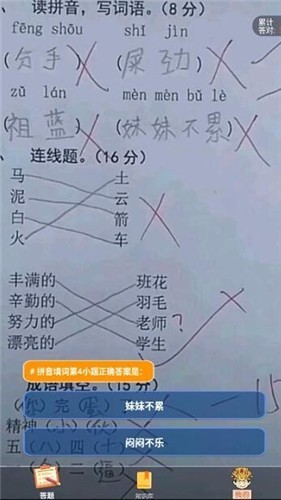 读拼音,写词语。(8分)
累计
答对:
fēng shōu shǐ jìn
(分手) (屎劲)
zǔ lán mèn mèn bǔ lè
(祖蓝) (妹妹不累)
连线题。(16分)
马 土
泥 云
白 箭
火 车
丰满的 班花
辛勤的 羽毛
努力的 老师 ?
漂亮的 学生
#拼音填词第4小题正确答案是:
成语填空。(15分)
完 蛋 -15
妹妹不累
精神(小)(伙)
闷闷不乐
五(八)四(十)
二 福
答题 知识库